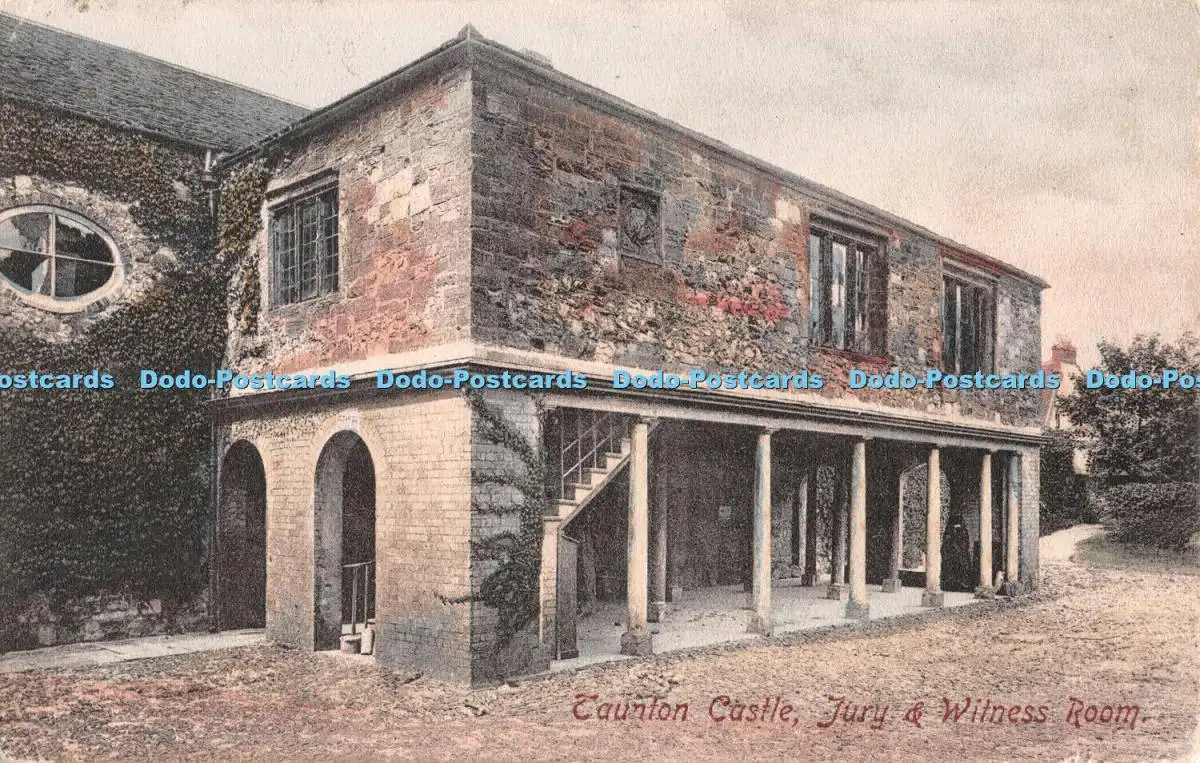 Dodo-Postcards Dodo-Postcards Dodo-Postcards Dodo-Postcards Dodo-Postcards Dodo-Postcards
Taunton Castle, Jury & Witness Room.